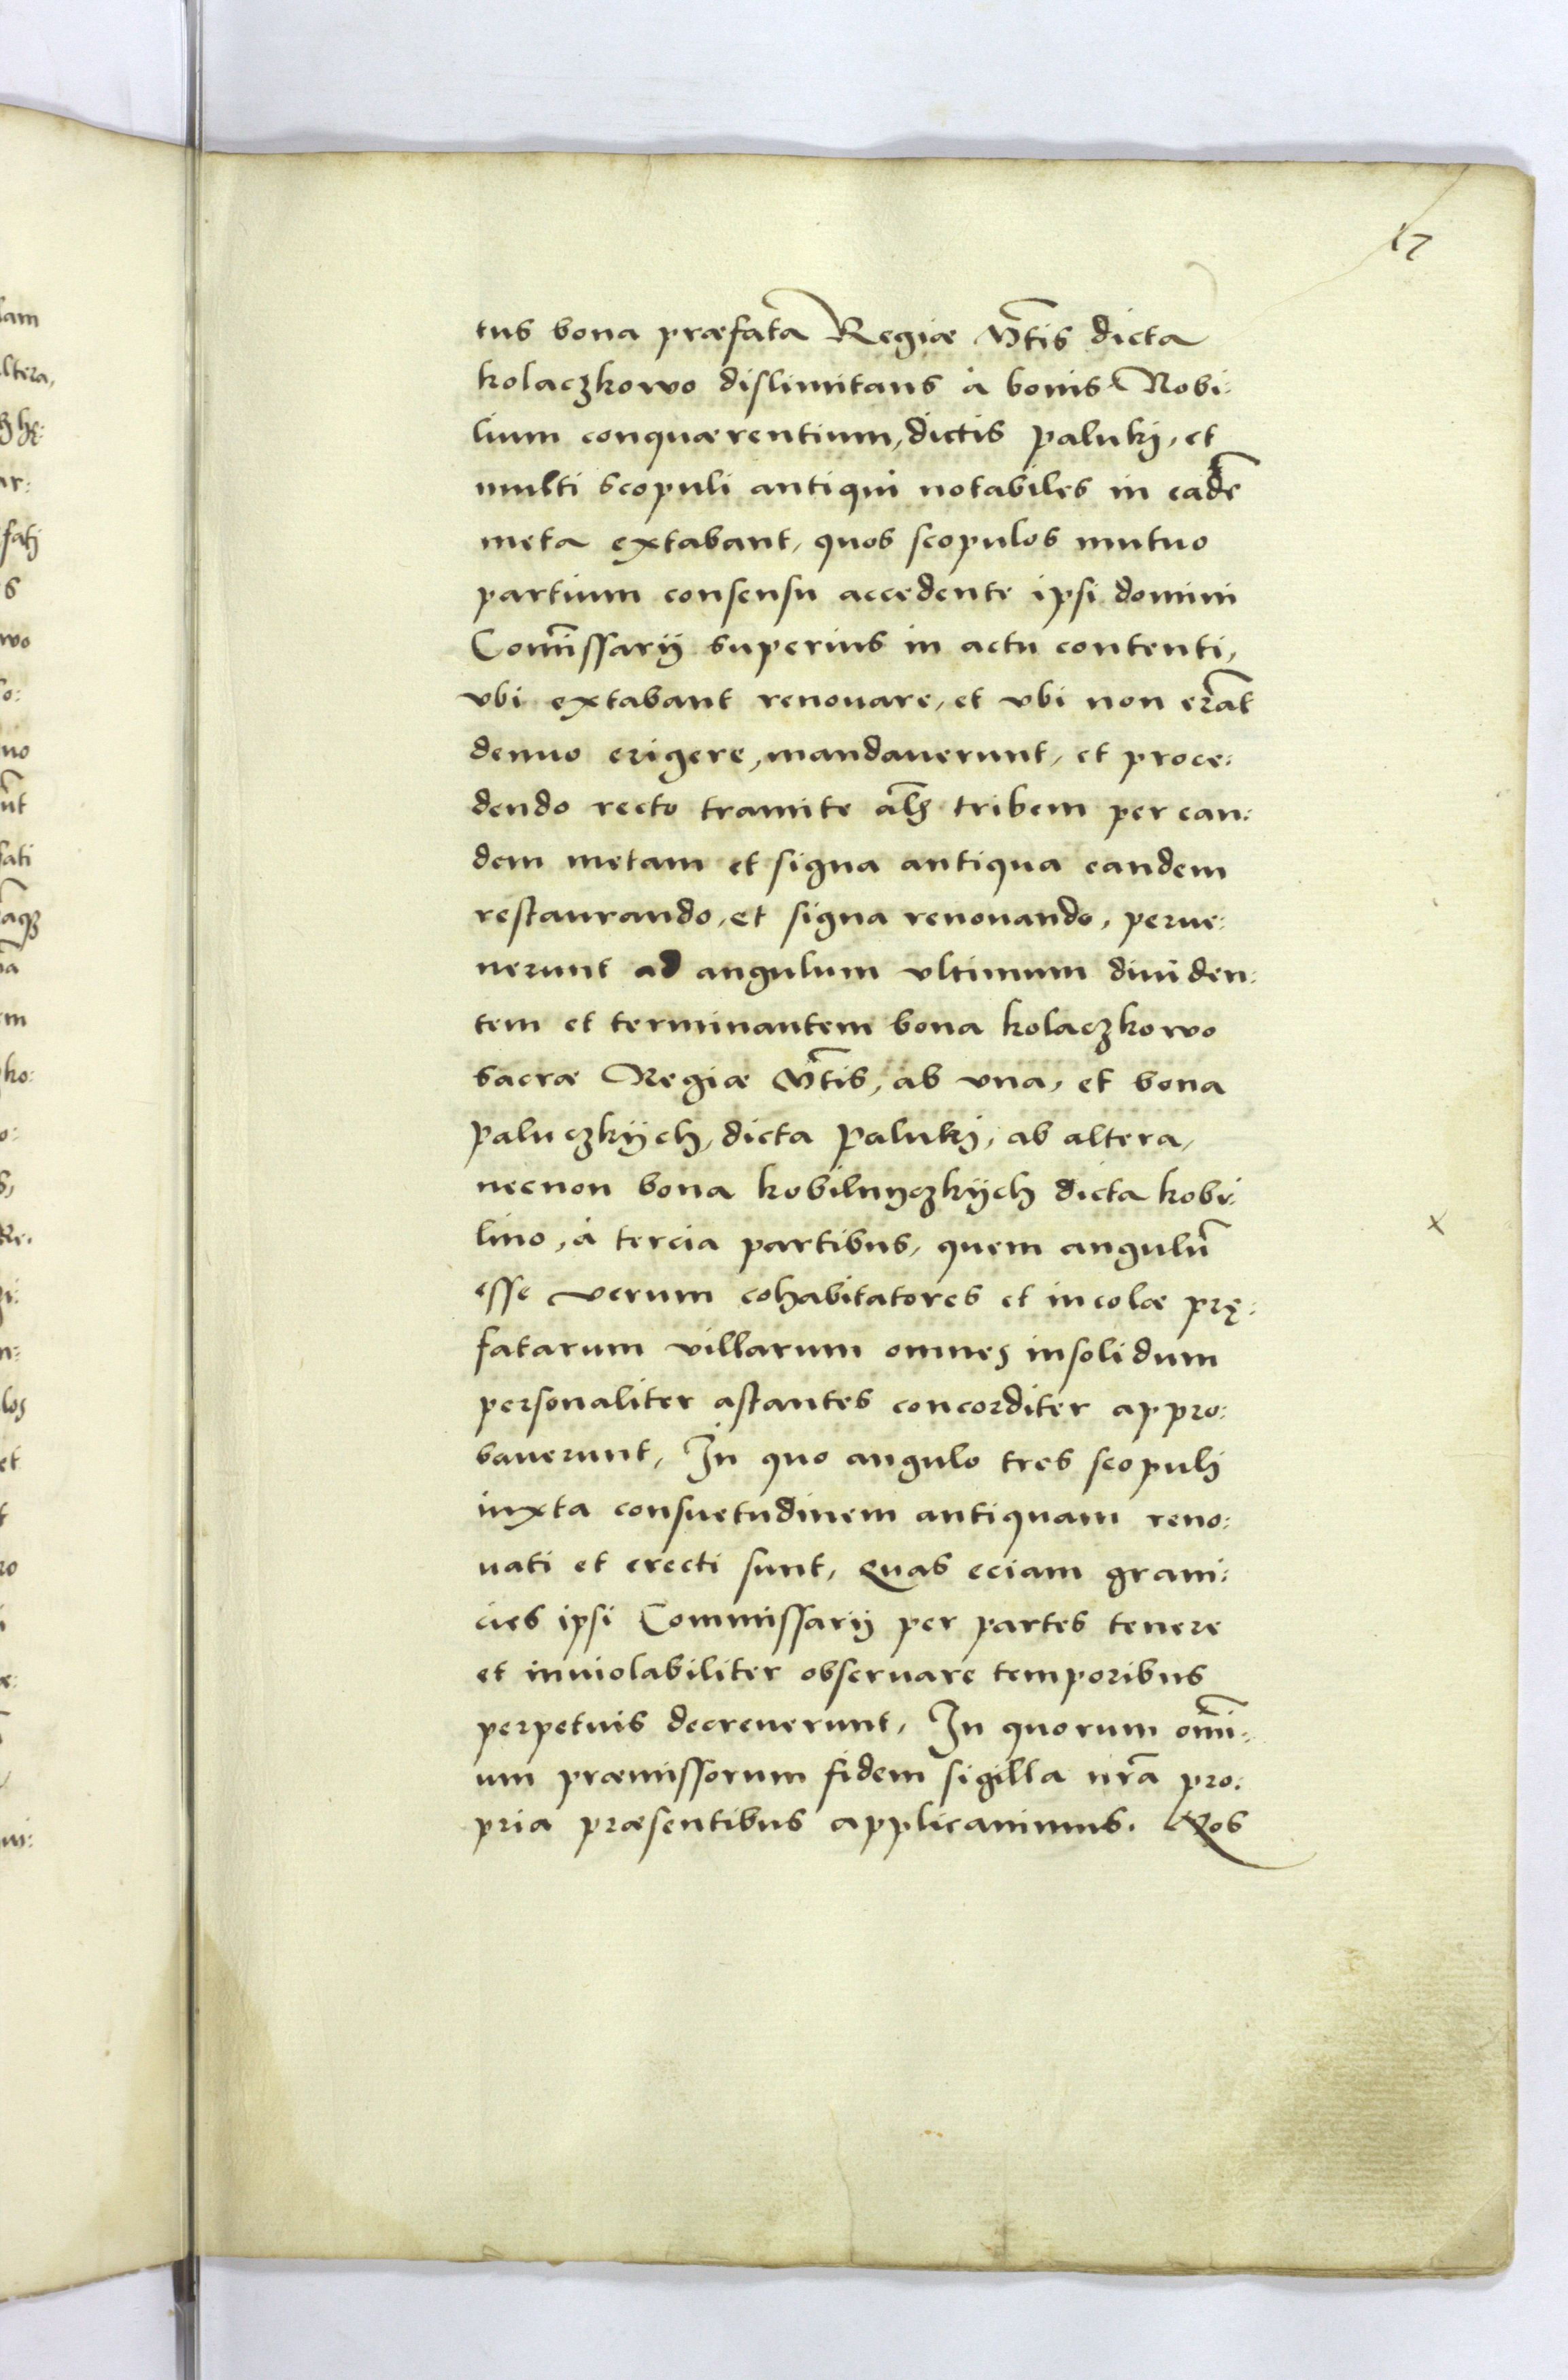 17
tus bona præfata Regiæ Mtis dicta
kolaczkowo dislimitans à bonis Nobi:
lium conquærentium, dictis paluky, et
multi scopuli antiqui notabiles in eadē
meta extabant, quos scopulos mutuo
partium consensu accedente ipsi domini
Com̄issarij superius in actu contenti,
vbi extabant renouare, et vbi non erāt
denuo erigere, mandauerunt, et proce:
dendo recto tramite tribem per ean:
dem metam et signa antiqua eandem
restaurando, et signa renouando, perue:
nerunt ad angulum vltimum diuiden:
tem et terminantem bona kolaczkowo
sacræ Regiæ Mtis, ab vna, et bona
paluczkych, dicta paluky, ab altera,
necnon bona kobilnyczkych dicta kobi:
lino, à tercia partibus, quem angulū
esse verum cohabitatores et incolæ prę:
fatarum villarum omnes insolidum
personaliter astantes concorditer appro:
bauerunt, In quo angulo tres scopuli
iuxta consuetudinem antiquam reno:
uati et erecti sunt, Quas eciam grani:
cies ipsi Commissarij per partes tenere
et inuiolabiliter obseruare temporibus
perpetuis decreuerunt, In quorum om̄i:
um præmissorum fidem sigilla nr̄a pro:
pria præsentibus applicauimus. Nos
x